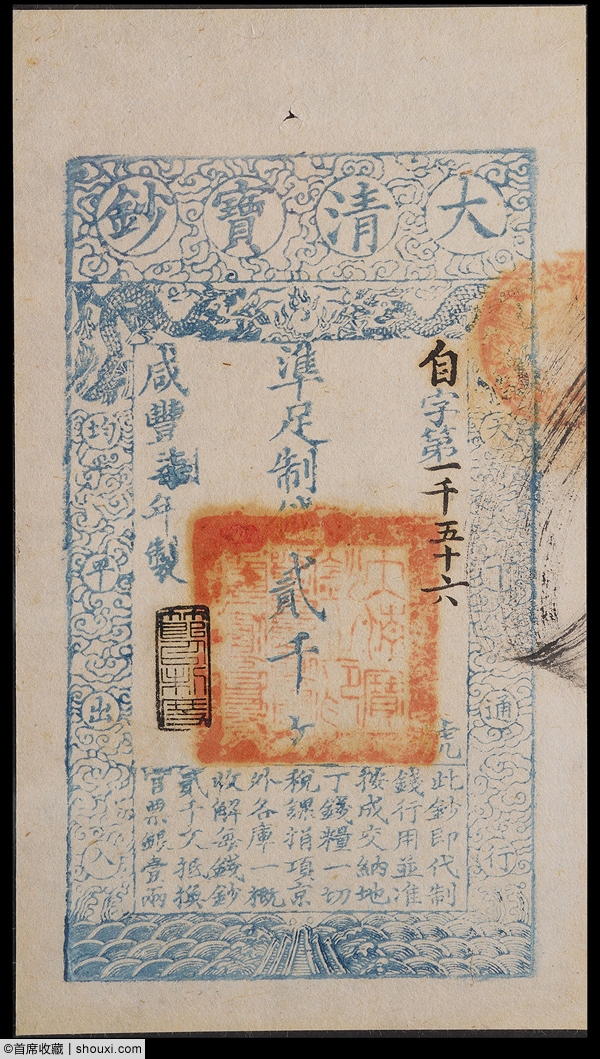 大清寶鈔
天下通行
自字第一千五十六號
準足制錢貳千文
咸豐柒年製
均平出入
此鈔即代制
錢行用並准
按成交納地
丁錢糧一切
稅課捐項京
外各庫一概
收解每錢鈔
貳千文抵換
官票銀壹兩
©首席收藏 | shouxi.com